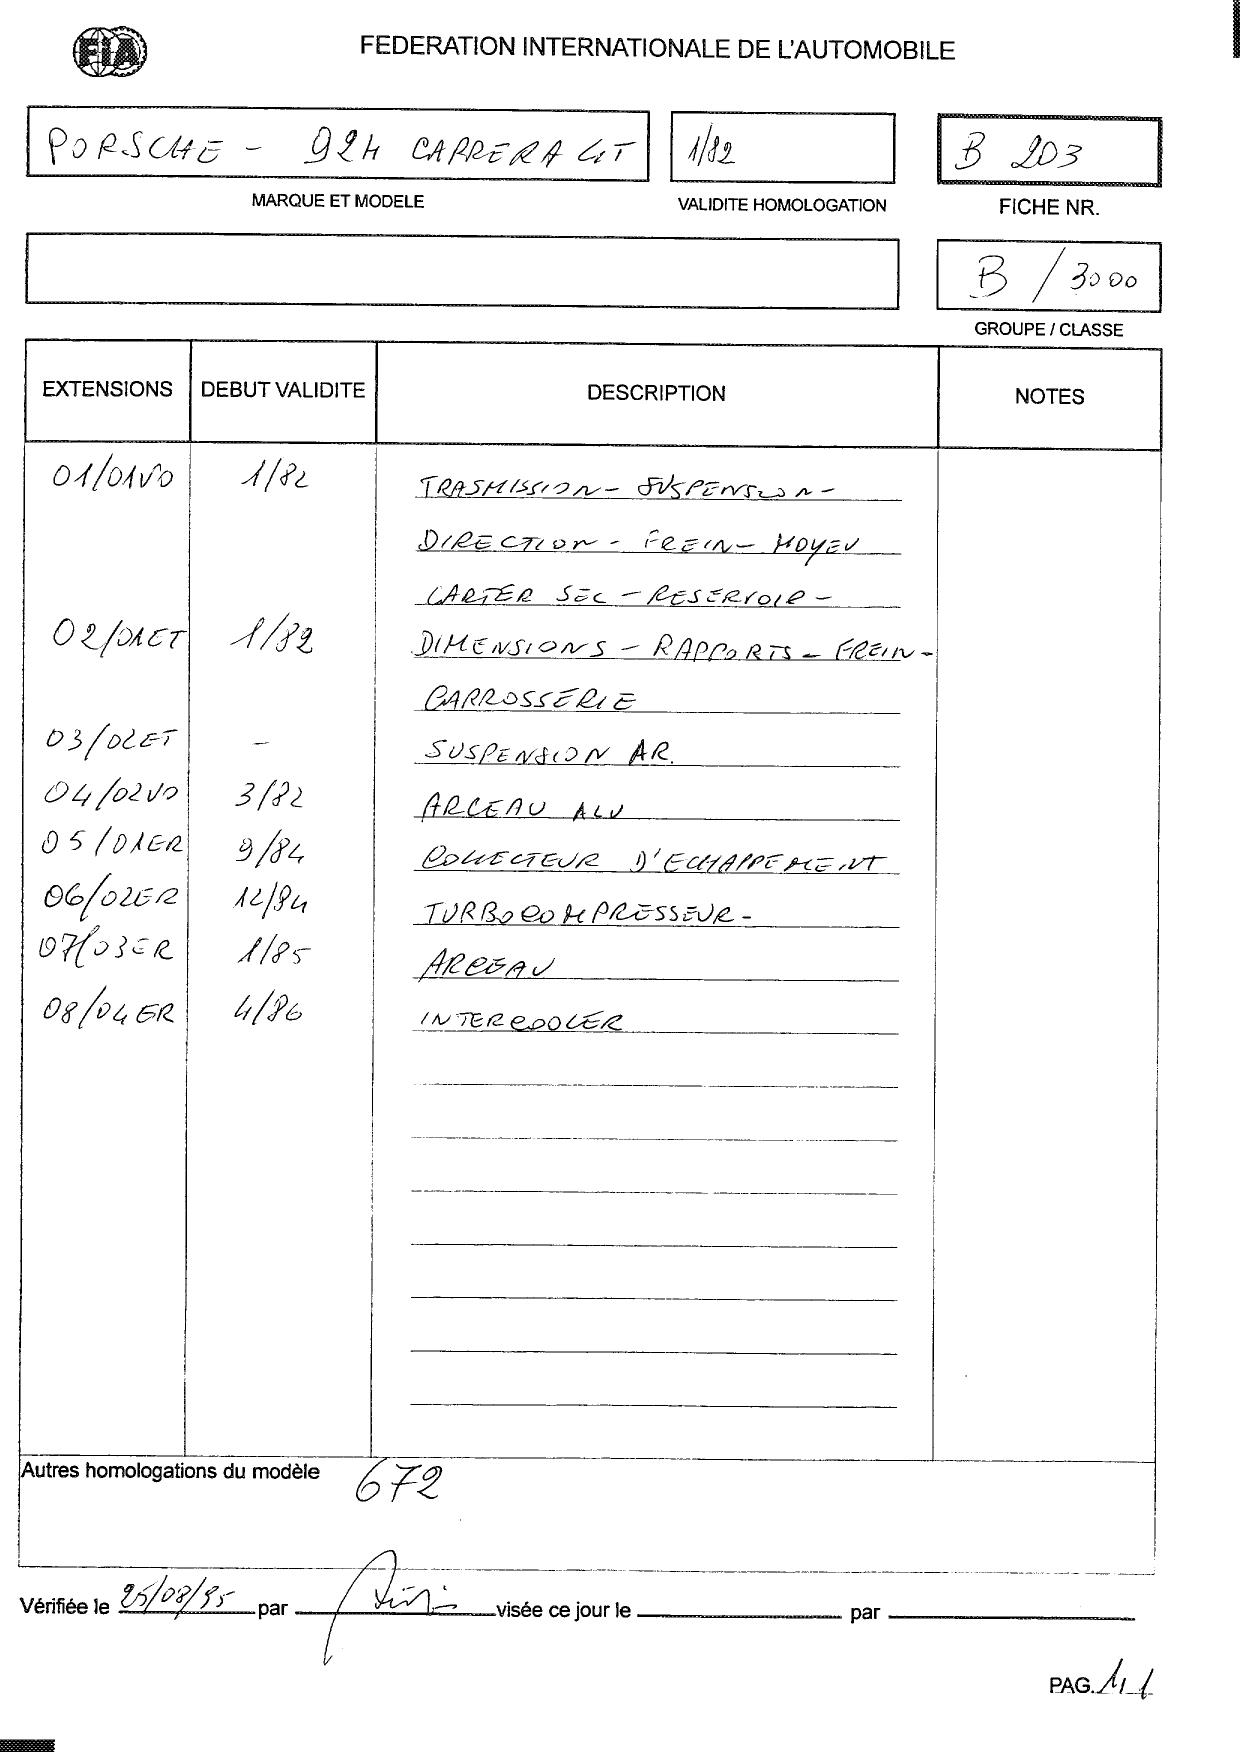 FIA
FEDERATION INTERNATIONALE DE L'AUTOMOBILE
PORSCHE - 924 CARRERA GT
1/82
B 203
MARQUE ET MODELE
VALIDITE HOMOLOGATION
FICHE NR.
B / 3000
GROUPE / CLASSE
EXTENSIONS DEBUT VALIDITE DESCRIPTION NOTES
01/01VO 1/82 TRASMISSION - SUSPENSION -
DIRECTION - FREIN - MOYEU
CARTER SEC - RESERVOIR -
02/01ET 1/82 DIMENSIONS - RAPPORTS - FREIN -
CARROSSERIE
03/02ET - SUSPENSION AR.
04/02VO 3/82 ARCEAU ALU
05/01ER 9/84 COLLECTEUR D'ECHAPPEMENT
06/02ER 12/84 TURBOCOMPRESSEUR -
07/03ER 1/85 ARCEAU
08/04ER 4/86 INTERCOOLER
Autres homologations du modèle 672
Vérifiée le 25/08/95 par visée ce jour le par
PAG. 1/1